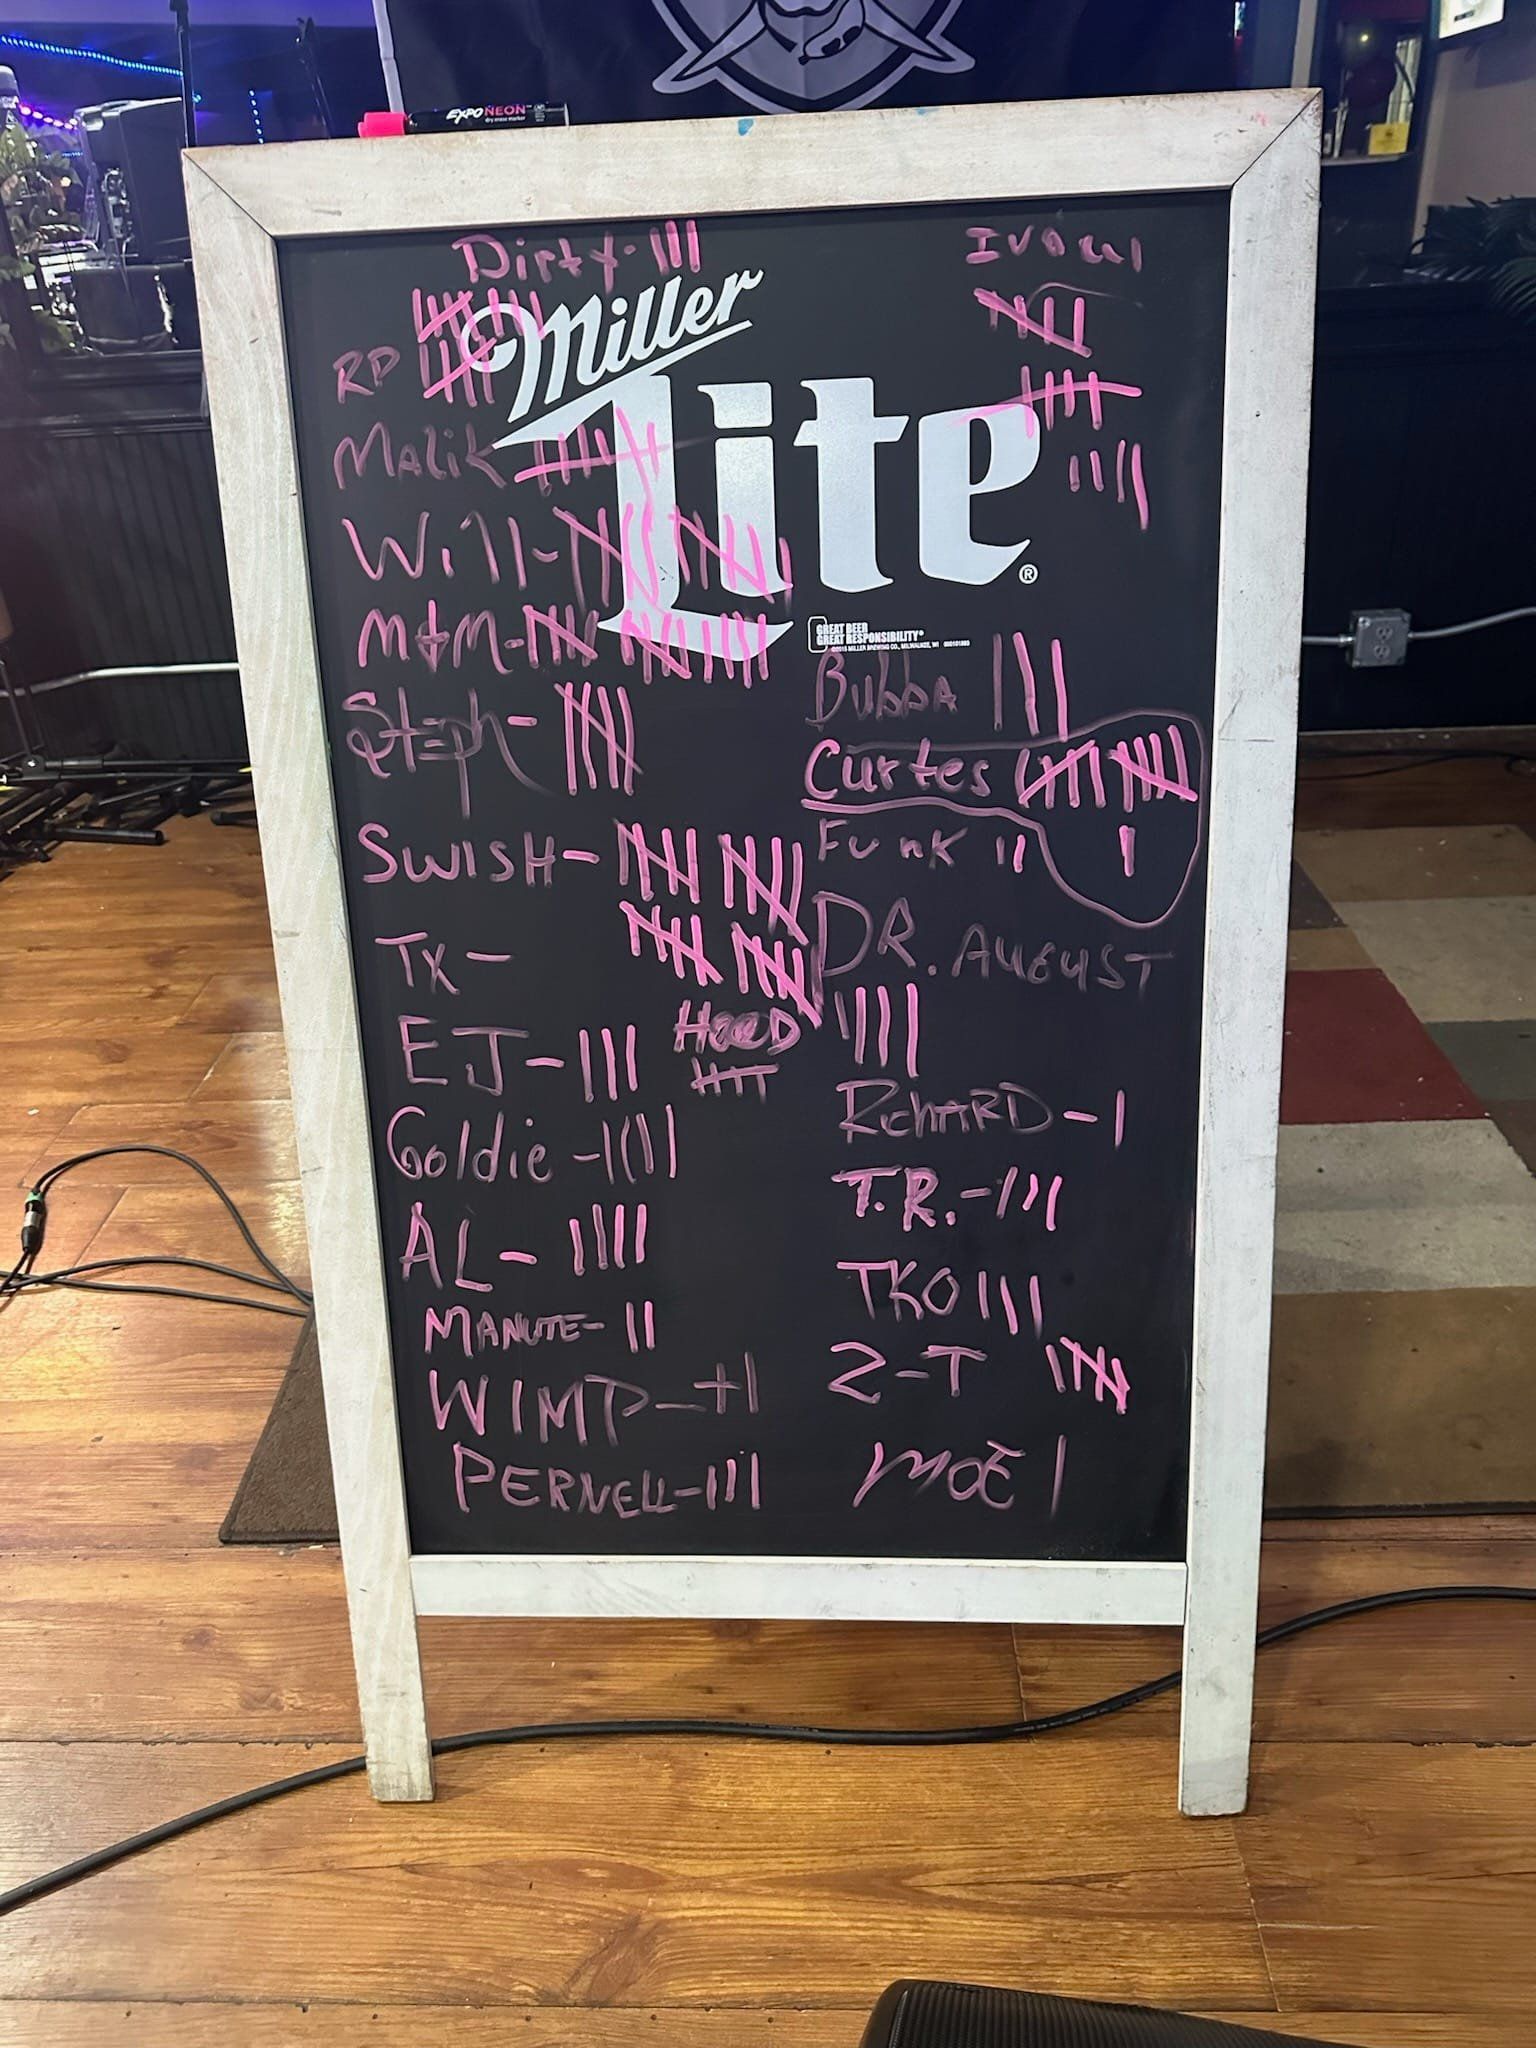 EXPO NEON
dry erase marker
Dirty - |||
Ivori
RP
Miller
Lite
®
Malik
Will -
M+M -
GREAT BEER
GREAT RESPONSIBILITY®
©2015 MILLER BREWING CO., MILWAUKEE, WI
Steph -
Bubba |||
Curtes
SWISH -
Funk ||
TX -
DR. AUGUST
||||
EJ - |||
HOOD
Goldie - ||||
RicHARD - |
AL - ||||
T.R. - |||
MANUTE - ||
TKO |||
WIMP -
Z-T
PERNELL - |||
MOE |